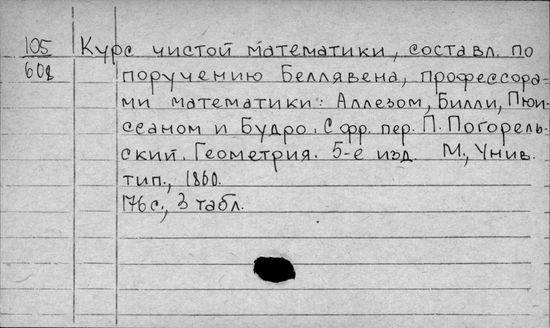 105 Курс чистой математики, составл. по
608 поручению Беллавена, профессора-
ми математики: Аллезом, Билли, Пюи-
ссаном и Будро. С фр. пер. П. Погорель-
ский. Геометрия. 5-е изд. М., Унив.
тип., 1860.
176 с., 3 табл.